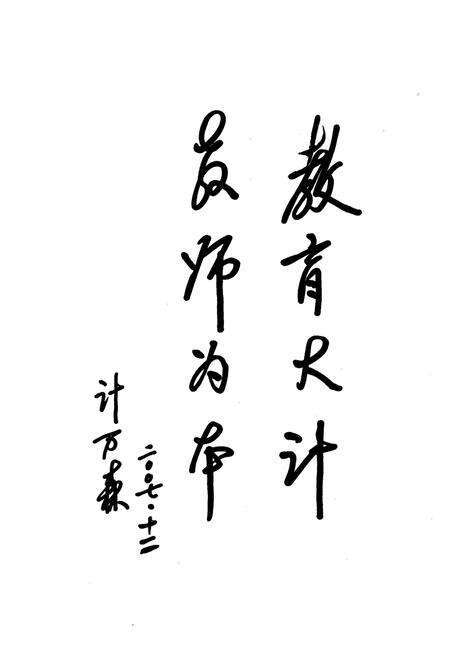 教育大计
教师为本
二〇〇七·十二
计万